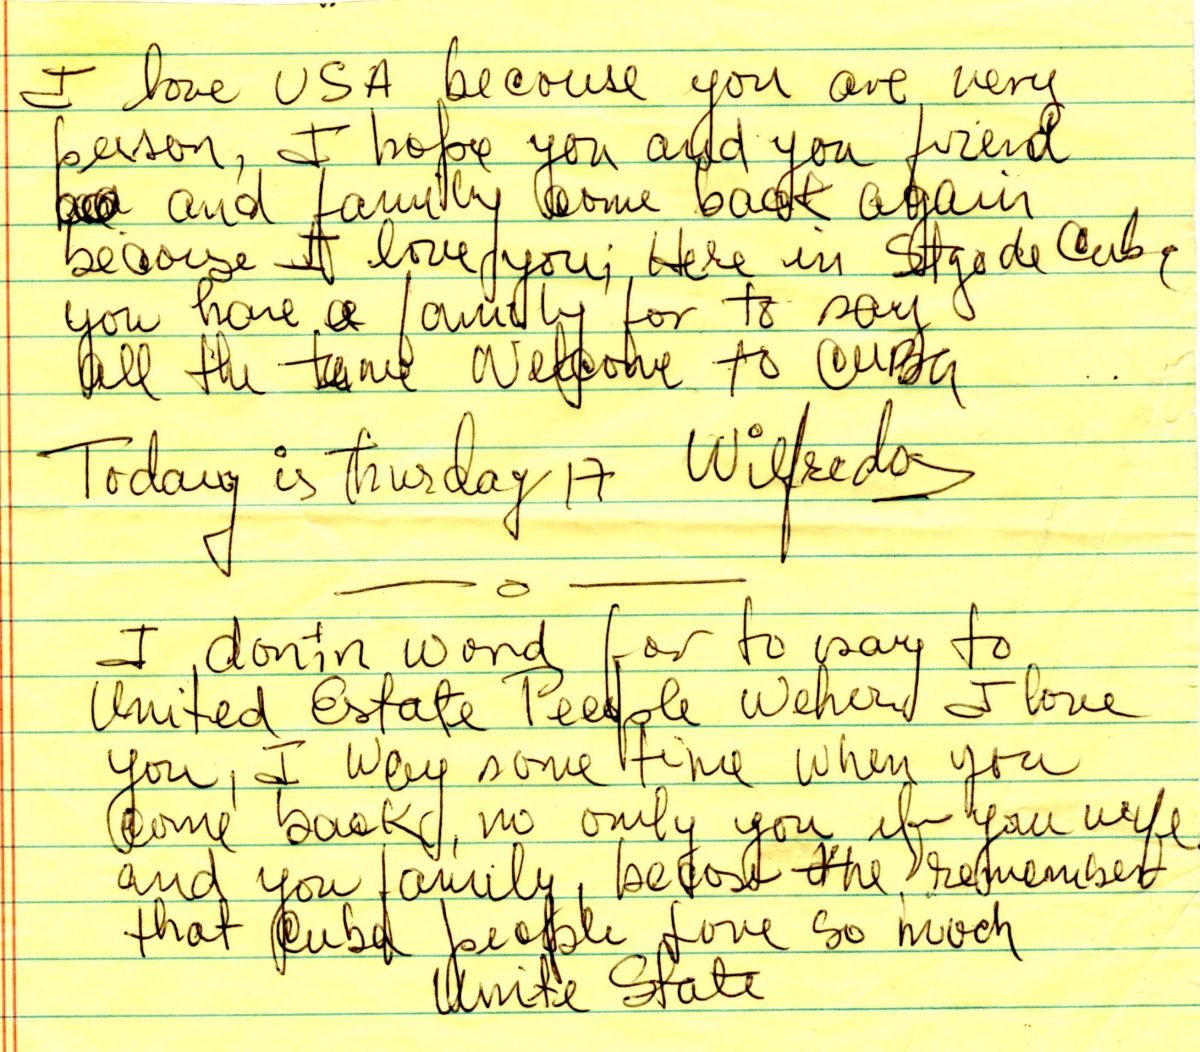 I love USA because you are very
person, I hope you and you friend
and family come back again
because I love you; Here in Stgo de Cuba
you have a family for to say
all the time Welcome to CUBA
Today is thursday 17 Wilfredo
I don't word for to say to
United Estate People I love
you, I way some time when you
come back, no only you if you wife
and you family, the remembert
that Cuba people love so much
Unite State